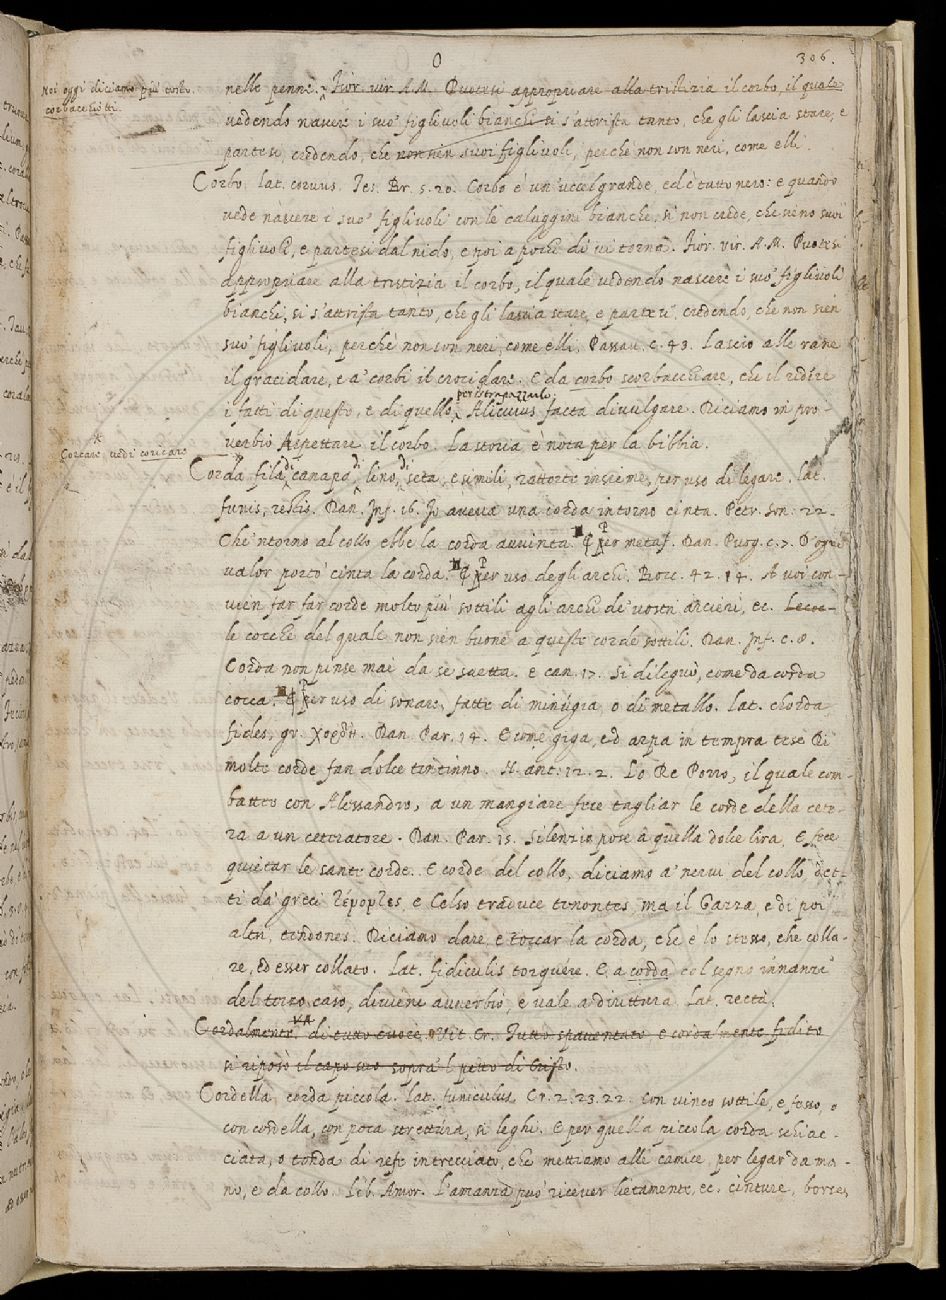 O
306.
Noi oggi diciamo più tosto
corbacchiotti.
nelle penne. Fior. vir. A.M. Puotesi appropriare alla tristizia il corbo, il quale
vedendo nascere i suo' figlivoli bianchi si s'attrista tanto, che gli lascia stare, e
partesi, credendo, che non sien suoi figlivoli, perchè non son neri, come elli.
Corbo. Lat. corvus. Tes. Br. 5. 20. Corbo è un'uccel grande, ed è tutto nero: e quando
vede nascere i suo' figlivoli con le caluggini bianche, si non crede, che sieno suoi
figlivoli, e partesi dal nido, e poi a poche dì vi torna. Fior. vir. A.M. Puotesi
appropriare alla tristizia il corbo, il quale vedendo nascere i suo' figlivoli
bianchi, si s'attrista tanto, che gli lascia stare, e partesi, credendo, che non sien
suo' figlivoli, perchè non son neri, come elli. Passav. c. 43. Lascio alle rane
il gracidare, e a' corbi il crocidare. E da corbo scorbacchiare, che il ridire
per istrapazzarlo,
i fatti di questo, e di quello, Alicuius facta divulgare. Diciamo in pro-
verbio Aspettare il corbo. La storia è nota per la bibbia.
Corcare, vedi coricare
Corda fila di canapa, di lino, di seta, e simili, rattorte insieme, per uso di legare. lat.
funis, restis. Dan. Inf. 16. Io aveva una corda intorno cinta. Petr. son. 22.
Che 'ntorno al collo ebbe la corda avvinta. ¶ Per metaf. Dan. Purg. c. 7. D'ogni
valor portò cinta la corda. ¶ Per uso degli archi. Bocc. 42. 14. A voi con-
vien far far corde molto più sottili agli archi de' vostri arcieri, ec.
le cocche del quale non sien buone a queste corde sottili. Dan. Inf. c. 8.
Corda non pinse mai da se saetta. e can. 17. Si dileguò, come da corda
cocca. ¶ Per uso di sonare, fatte di minugia, o di metallo. Lat. chorda
fides, gr. χορδή. Dan. Par. 14. E come giga, ed arpa in tempra tesa Di
molte corde fan dolce tintinno. N. ant. 12. 2. Lo Re Porro, il quale com-
battèo con Alessandro, a un mangiare fece tagliar le corde della cete-
ra a un ceteratore. Dan. Par. 15. Silenzio pose a quella dolce lira, E fece
quietar le sante corde. E corde del collo, diciamo a' nervi del collo, det-
ti da' greci, e Celso traduce tenontes, ma il Gazza, e di poi
altri, tendones. Diciamo dare, e toccar la corda, che è lo stesso, che colla-
re, ed esser collato. Lat. fidiculis torquere. E a corda col segno innanzi
del terzo caso, diviene avverbio, e vale a dirittura. Lat. rectà.
V.A.
Cordalmente di tutto cuore. Vit. Cr. Tutto spaventato e cordalmente fidito
si riposò il capo suo sopra 'l petto di Cristo.
Cordella corda piccola. Lat. funiculus. Cr. 2. 23. 22. Con vinco sottile, e fesso, o
con cordella, con poca strettura, si leghi. E per quella piccola corda schiac-
ciata, o tonda di refe intrecciato, che mettiamo alle camice per legar da ma-
no, e da collo. Lib. Amor. L'amanza può ricever lietamente, ec. cinture, borse,